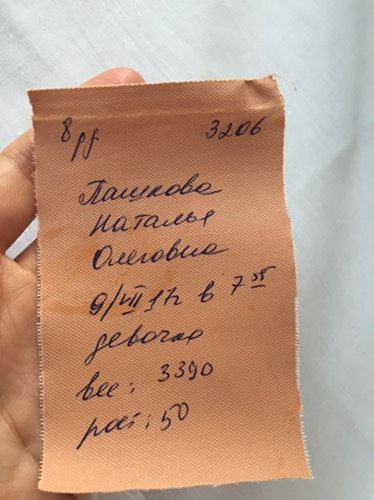 8 рд 3206
Пашкова
Наталья
Олеговна
9/VII 17г в 7 55
девочка
вес: 3390
рост: 50